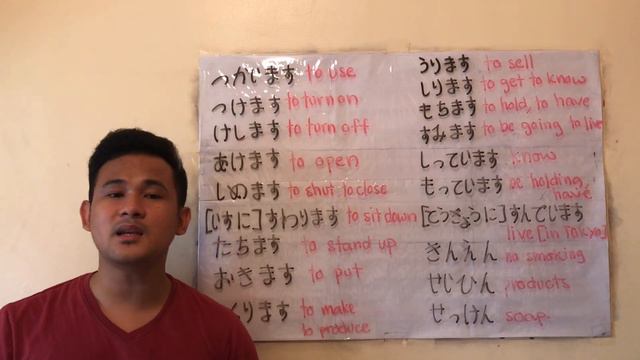 つかいます to use
つけます to turn on
けします to turn off
あけます to open
しめます to shut to close
[いすに]すわります to sit down
たちます to stand up
おきます to put
くります to make
to produce
うります to sell
しります to get to know
もちます to hold, to have
すみます to be going to live
しっています know
もっています be holding,
have
[とうきょうに]すんでいます
live [in Tokyo]
きんえん no smoking
せいひん products
せっけん soap.